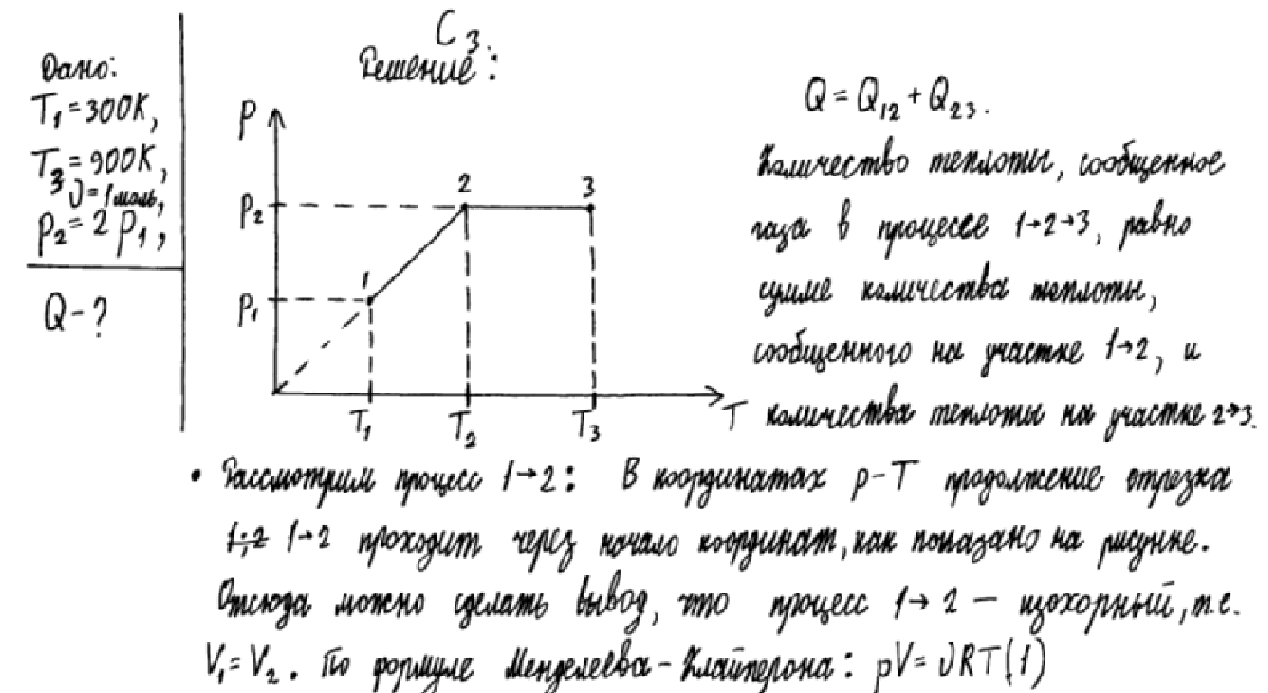 C3.
Решение:
Дано:
T₁=300K,
T₃=900K,
ν=1моль,
p₂=2p₁,
Q-?
p
p₂
p₁
1
2
3
T₁
T₂
T₃
T
Q=Q₁₂+Q₂₃.
Количество теплоты, сообщенное
газа в процессе 1→2→3, равно
сумме количества теплоты,
сообщенного на участке 1→2, и
количества теплоты на участке 2→3.
• Рассмотрим процесс 1→2: В координатах p-T продолжение отрезка
1;2 1→2 проходит через начало координат, как показано на рисунке.
Отсюда можно сделать вывод, что процесс 1→2 – изохорный, т.е.
V₁=V₂. По формуле Менделеева-Клайперона: pV=νRT(1)